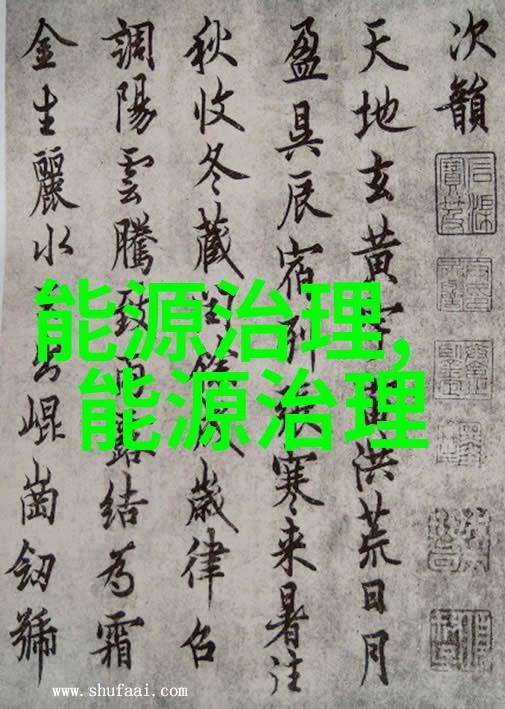 次韻
天地玄黃宇宙洪荒日月
盈昃辰宿列張寒来暑往
秋收冬藏閏餘成歲律召
調陽雲騰致雨露結為霜
金生麗水玉出崐崗劒號
能源治理,
能源治理
www.shufaai.com